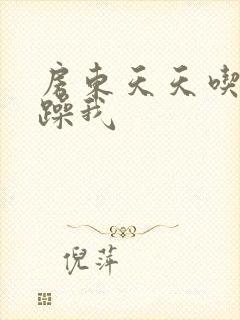 房东天天喫
躁我
倪萍